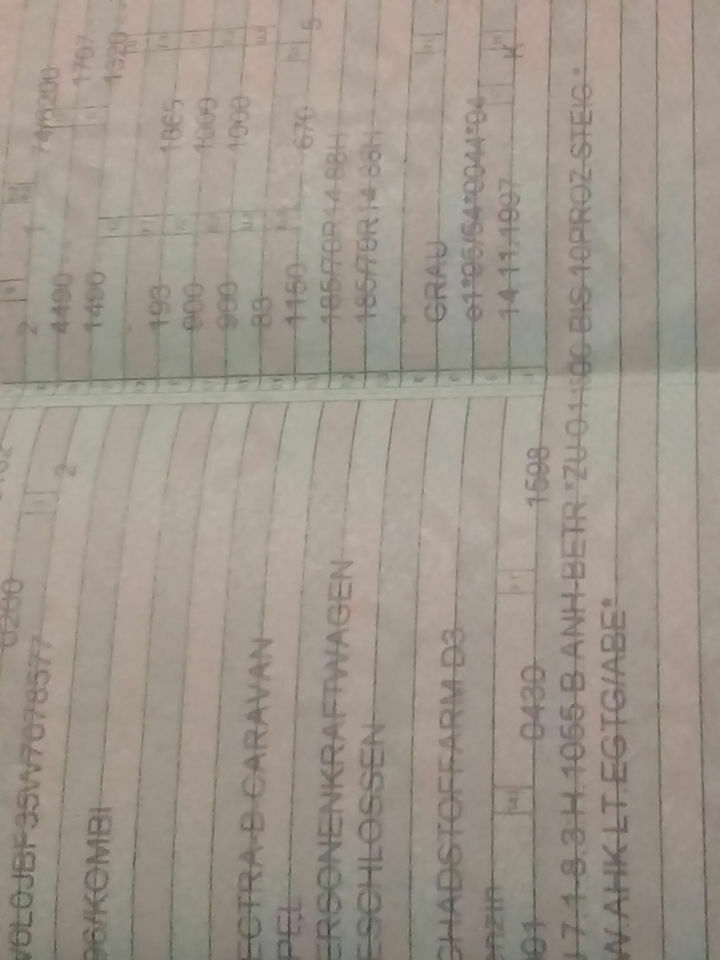 0200
W0L0JBF35W7078577
2
96/KOMBI
ECTRA-B-CARAVAN
PEL
ERSONENKRAFTWAGEN
ESCHLOSSEN
CHADSTOFFARM D3
enzin
01 0439 1598
2 1 74/6200
4490 1707
1490 1320
193 1865
900 1000
900 1000
83
1150 670 5
185/70R14 88H
185/70R14 88H
GRAU
e1*95/54*0044*04
14.11.1997 K
7.1-8.3:H.1055 B.ANH-BETR.*ZU O.1:*00 BIS 10PROZ.STEIG.*
W.AHK LT.EGTG/ABE*